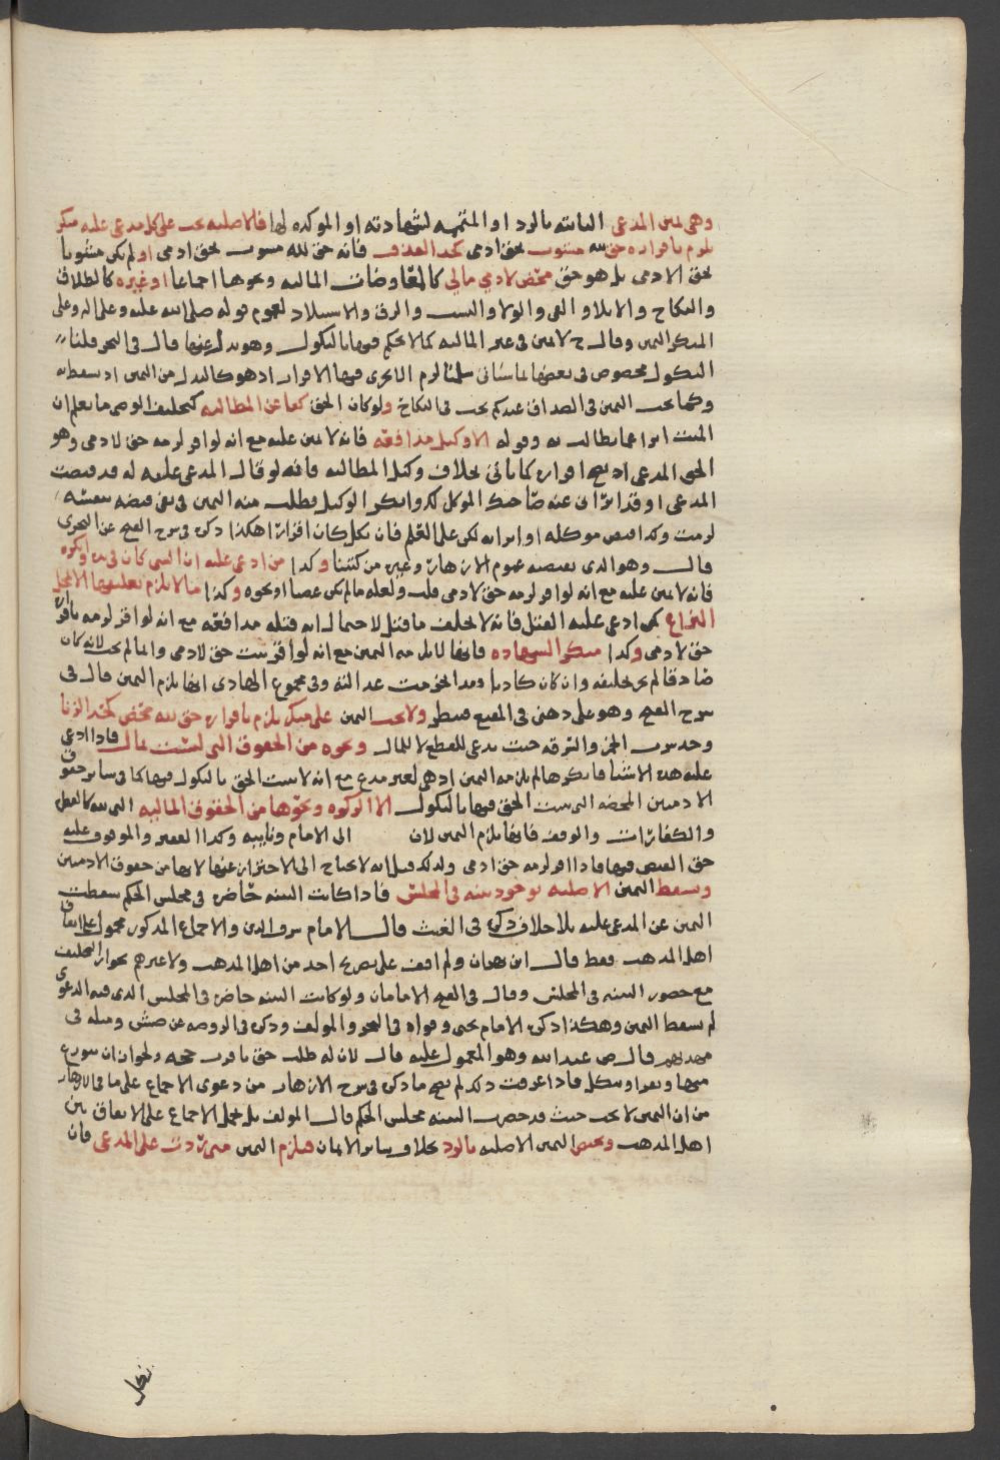 وهي يمين المدعي الثابته بالرد او المتممه لشهادته او الموكده لها فالاصليه تجب على كل مدعى عليه منكر
يلزم باقراره حق لله مشوب بحق ادمي كحد القذف فانه حق لله مشوب بحق ادمي او لم يكن مشوبا
بحق الادمي بل هو حق محض لادمي مالي كالمعاوضات الماليه ونحوها اجماعا او غيره كالطلاق
والنكاح والايلا والفي والولا والنسب والرق والاستيلاد لعموم قوله صلى الله عليه وعلى اله وعلى
المنكر اليمين وقال ح لا يمين في غير الماليه كما لا يحكم فيها بالنكول وهو بدل عنها قال في البحر قلنا
النكول مخصوص في بعضها لما سياتي سلمنا لزم الا يجري فيها الاقرار اذ هو كالبدل من اليمين اذ يسقط به
وكما تجب اليمين في الصداق عندكم تجب في النكاح ولو كان الحق كفا عن المطالبه كتحليف الوصي ما يعلم ان
الميت ابرا عما يطالب به وقوله الا وكيل مدافعه فانه لا يمين عليه مع انه لو اقر لزمه حق لادمي وهو
الحق المدعى اذ يصح اقراره كما ياتي بخلاف وكيل المطالبه فانه لو قال المدعى عليه له قد قبضت
المدعى او قد ابراني عنه صاحبك الموكل لك وانكر الوكيل وطلب منه اليمين في نفي قبضه بنفسه
لزمت وكذا قبض موكله او ابرائه لكن على العلم فان نكل كان اقرارا هكذا ذكره في شرح الفتح عن البحري
قال وهو الذي يقتضيه عموم الازهار وغيره من كتبنا وكذا من ادعي عليه ان الشي كان في يده وانكره
فانه لا يمين عليه مع انه لو اقر لزمه حق لادمي قلت ولعله ما لم يكن غصبا او نحوه وكذا ما لا يلزم تعليقها الا محل
النزاع كمن ادعي عليه القتل فانه لا يحلف ما قتل لاحتمال انه قتله مدافعه مع انه لو اقر لزمه باقراره
حق لادمي وكذا منكر الشهاده فانها لا تلزمه اليمين مع انه لو اقر ثبت حق لادمي وانما لم تجب لانه ان كان
صادقا لم يجز تحليفه وان كان كاذبا فقد انخرمت عدالته وفي مجموع الهادي انها تلزم اليمين قال في
شرح الفتح وهو على ذهني في المقنع فينظر ولا تجب اليمين على منكر يلزم باقراره حق لله محض كحد الزنا
وحد شرب الخمر والسرقه حيث يدعى للقطع لا للمال ونحوه من الحقوق التي ليست بمال فاذا ادعي
عليه هذه الاشيا فانكرها لم تلزمه اليمين اذ هي لغير مدع مع انه لا يثبت الحق بالنكول فيها كما في سائر حقوق
الادميين المحضه التي يثبت الحق فيها بالنكول الا الزكوه ونحوها من الحقوق الماليه التي لله كالفطر
والكفارات والوقف فانها تلزم اليمين لان الى الامام ونايبه وكذا الفقير والموقوف عليه
حق القبض فيها فاذا اقر لزمه حق ادمي ولذلك قيل انه لا يحتاج الى الاحتراز عنها لانها من حقوق الادميين
وتسقط اليمين الاصليه بوجود بينه في المجلس فاذا كانت البينه حاضره في مجلس الحكم سقطت
اليمين عن المدعى عليه بلا خلاف ذكره في الغيث قال الامام شرف الدين والاجماع المذكور محمول على اتفاق
اهل المذهب فقط قال ابن بهران ولم اقف على تصريح احد من اهل المذهب ولا غيرهم بجواز التحليف
مع حضور البينه في المجلس وقال في الفتح الامامان ولو كانت البينه حاضره في المجلس الذي فيه الدعوى
لم تسقط اليمين وهكذا ذكره الامام يحيى وقواه في الفتح والمولف وذكره في الروضه عن صش ومثله في
قال ص عبدالله وهو المعمول عليه قال لان له طلب حقه باقرب حجه ولجواز ان يتورع
منها ويقر او ينكل فاذا عرفت ذلك لم يصح ما ذكره في شرح الازهار من دعوى الاجماع على ما في الازهار
من ان اليمين لا تجب حيث قد حضرت البينه مجلس الحكم قال المولف بل يحمل الاجماع على الاتفاق بين
اهل المذهب وتختص اليمين الاصليه بالرد بخلاف سائر الايمان فيلزم اليمين متى ردت على المدعي فان